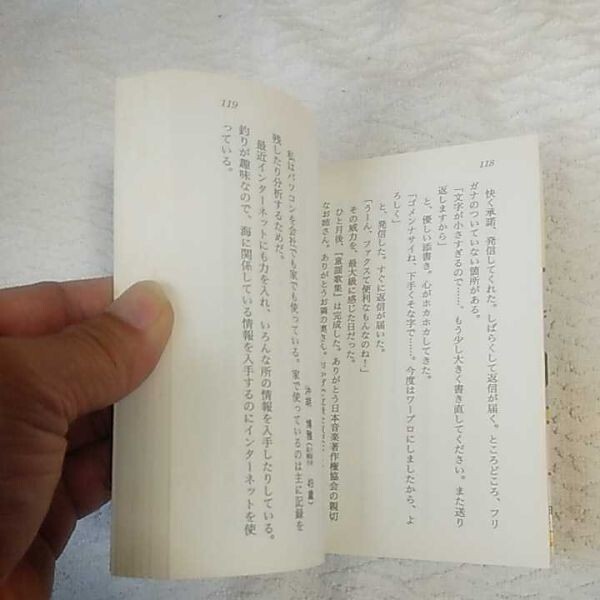 118
快く承諾、発信してくれた。しばらくして返信が届く。ところどころ、フリ
ガナのついていない箇所がある。
「文字が小さすぎるので……。もう少し大きく書き直してください。また送り
返しますから」
と、優しい添書き。心がホカホカしてきた。
「ゴメンナサイね、下手くそな字で……。今度はワープロにしましたから、よ
ろしく」
と、発信した。すぐに返信が届いた。
「うーん、ファクスて便利なもんなのね!」
その威力を、最大級に感じた日だった。
ひと月後、『童謡歌集』は完成した。ありがとう日本音楽著作権協会の親切
なお姉さん。ありがとうお隣の奥さん。
119
博雅
私はパソコンを会社でも家でも使っている。家で使っているのは主に記録を
残したり分析するためだ。
最近インターネットにも力を入れ、いろんな所の情報を入手したりしている。
釣りが趣味なので、海に関係している情報を入手するのにインターネットを使
っている。